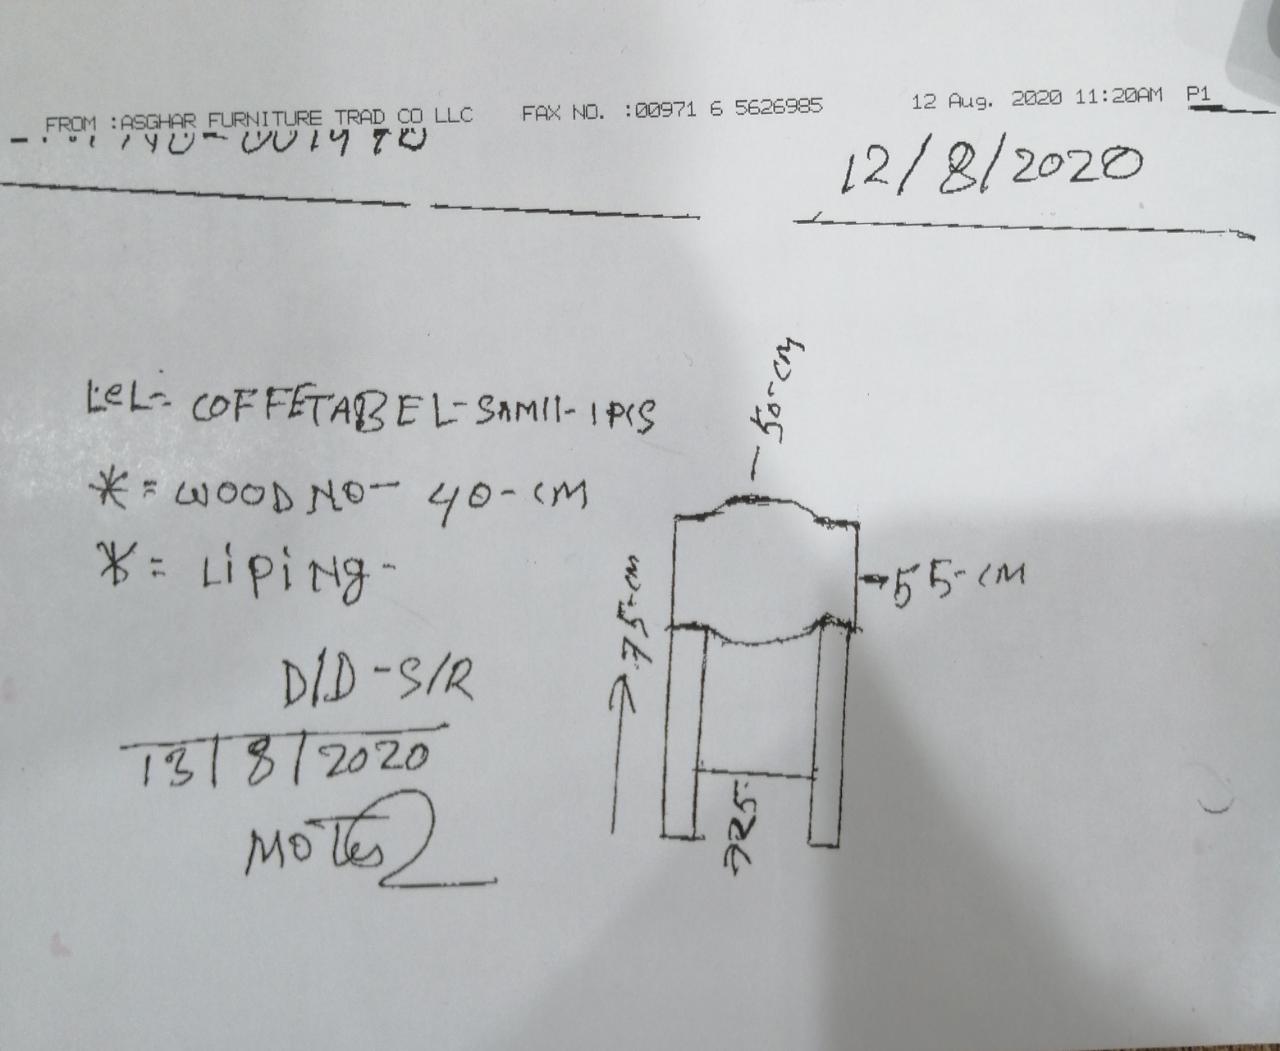 FROM :ASGHAR FURNITURE TRAD CO LLC FAX NO. :00971 6 5626985 12 Aug. 2020 11:20AM P1
12/8/2020
COFFETABEL-SAMII-1PCS
*= WOOD NO- 40-CM
*= LiPiNg-
D/D-S/R
13/8/2020
50-CM
55-CM
75-CM